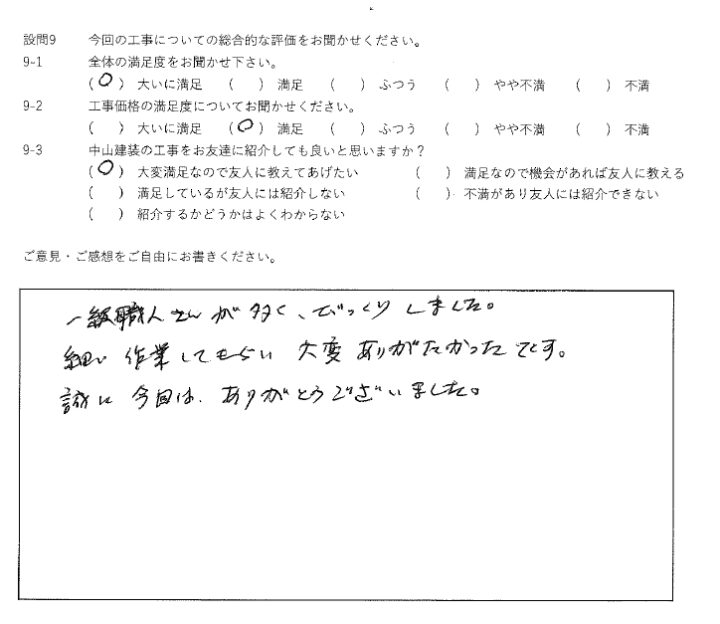 設問9 今回の工事についての総合的な評価をお聞かせください。
9-1 全体の満足度をお聞かせ下さい。
(○) 大いに満足 ( ) 満足 ( ) ふつう ( ) やや不満 ( ) 不満
9-2 工事価格の満足度についてお聞かせください。
( ) 大いに満足 (○) 満足 ( ) ふつう ( ) やや不満 ( ) 不満
9-3 中山建装の工事をお友達に紹介しても良いと思いますか?
(○) 大変満足なので友人に教えてあげたい ( ) 満足なので機会があれば友人に教える
( ) 満足しているが友人には紹介しない ( ) 不満があり友人には紹介できない
( ) 紹介するかどうかはよくわからない
ご意見・ご感想をご自由にお書きください。
一級職人さんが多く、びっくりしました。
細い作業してもらい大変ありがたかったです。
誠に今回は、ありがとうございました。